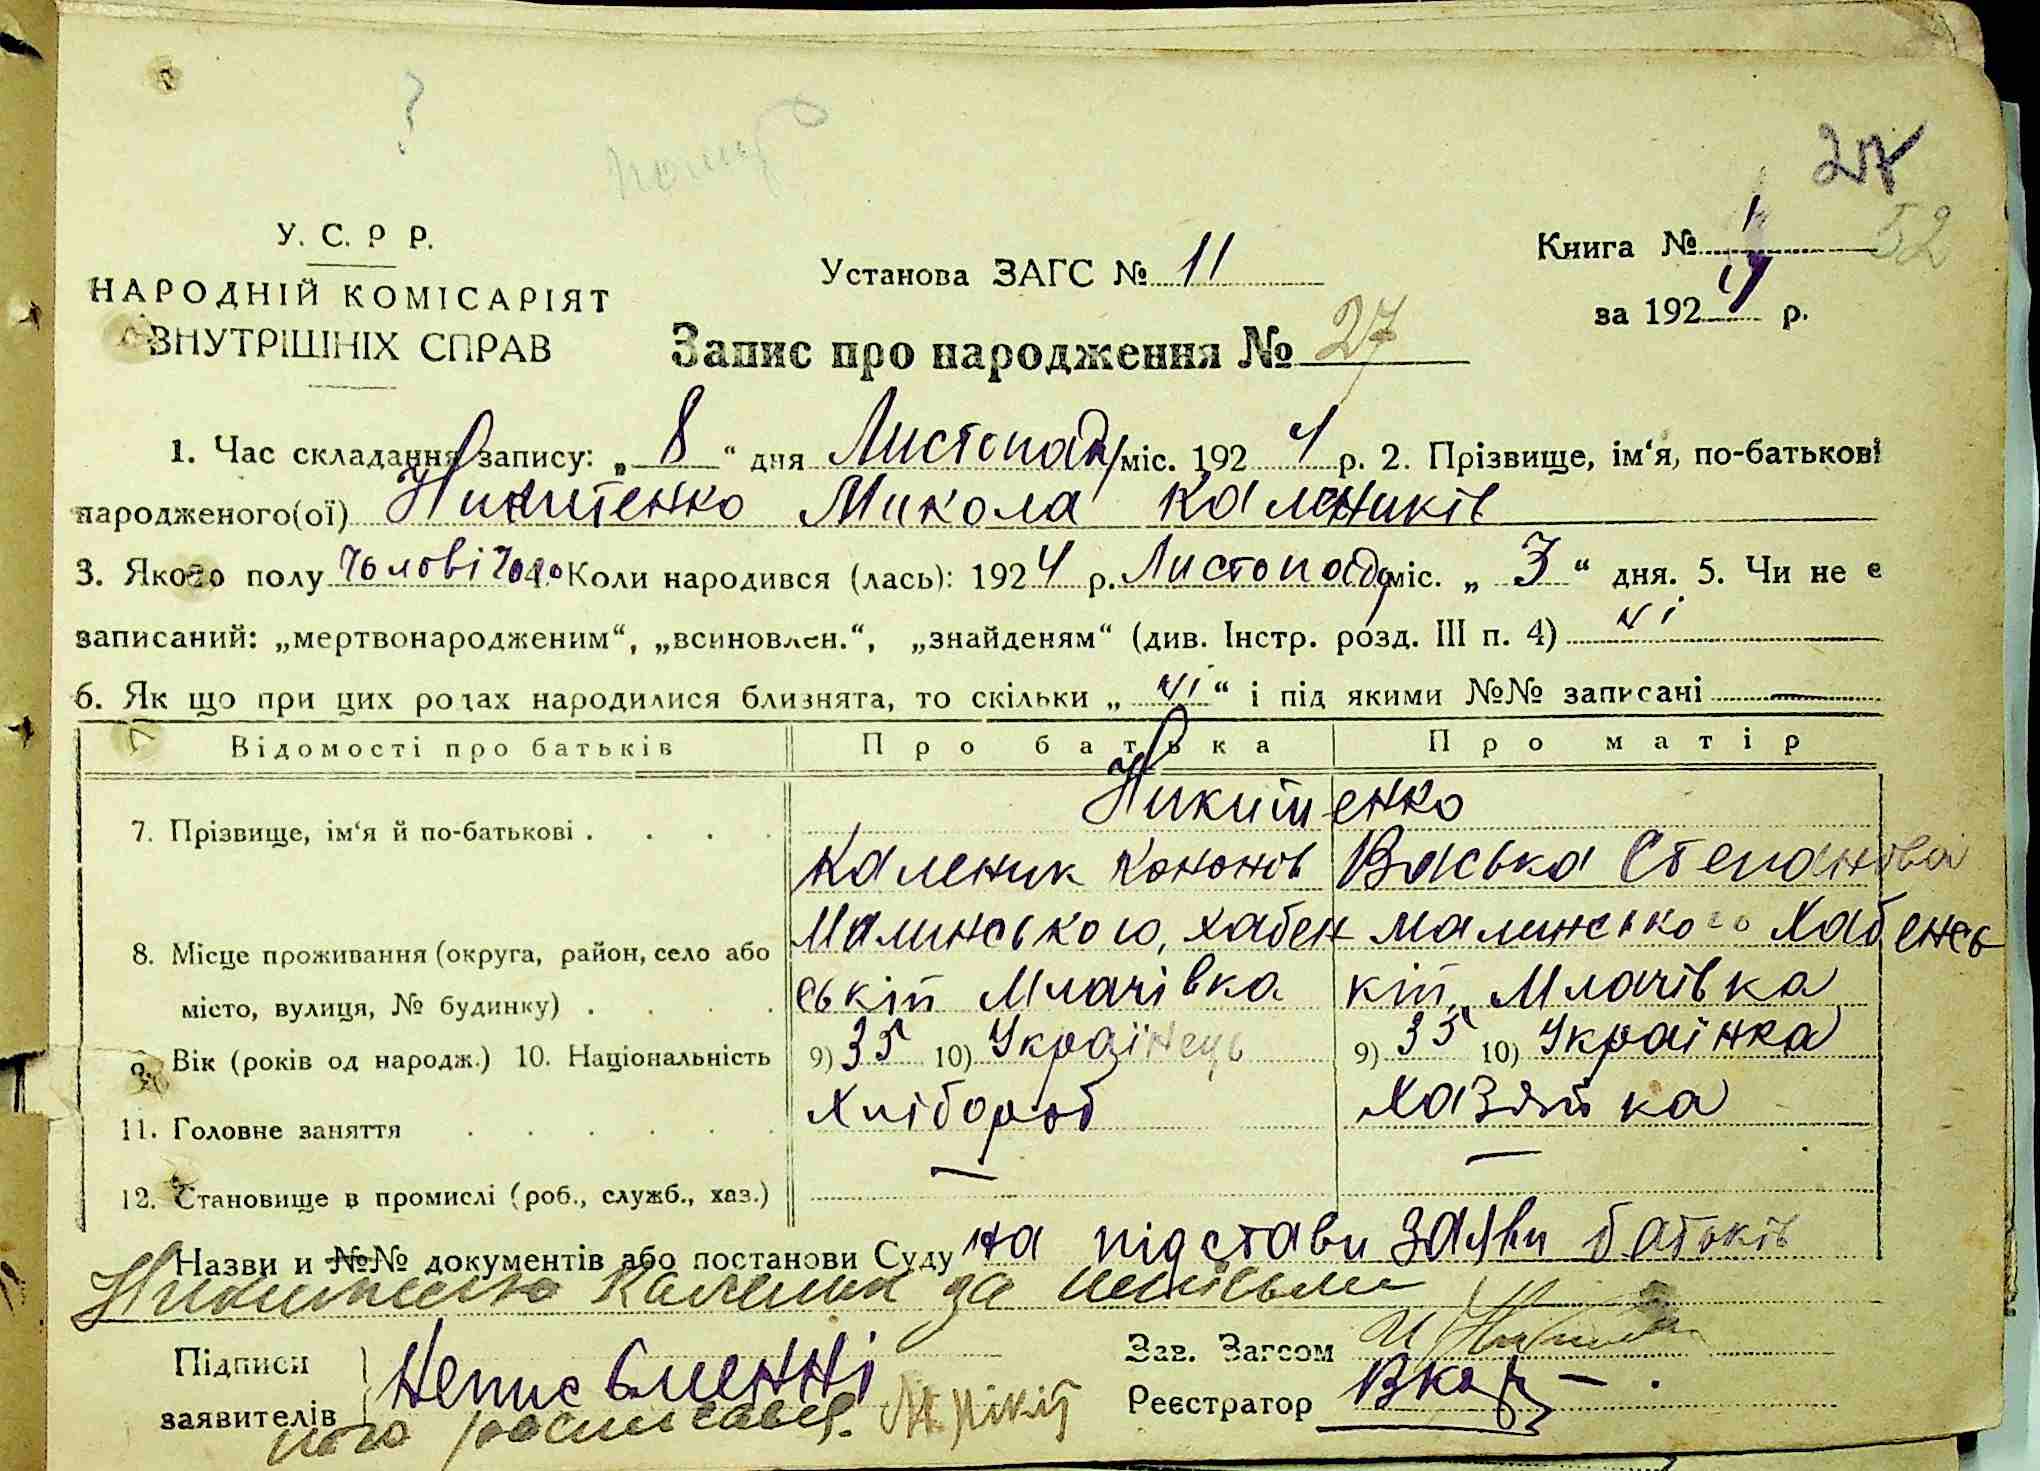 ?
27
52
У. С. Р Р.
НАРОДНІЙ КОМІСАРІЯТ
ВНУТРІШНІХ СПРАВ
Установа ЗАГС № 11
Книга № 1
за 1924 р.
Запис про народження № 27
1. Час складання запису: „ 8 “ дня Листопада міс. 1924 р. 2. Прізвище, ім‘я, по-батькові
народженого(ої) Никитенко Микола Калеників
3. Якого полу чоловічого 4. Коли народився (лась): 1924 р. Листопада міс. „ 3 “ дня. 5. Чи не є
записаний: „мертвонародженим“, „всиновлен.“, „знайденям“ (див. Інстр. розд. III п. 4) ні
6. Як що при цих родах народилися близнята, то скільки „ ні “ і під якими №№ записані —
Відомості про батьків Про батька Про матір
7. Прізвище, ім‘я й по-батькові . . . . Никитенко
Каленик Кононів Васька Степанова
8. Місце проживання (округа, район, село або Малинського, Хабен Малинського Хабенсь
місто, вулиця, № будинку) . . . . ській Млачівка кій, Млачівка
9. Вік (років од народж.) 10. Національність 9) 35 10) Українець 9) 35 10) Українка
11. Головне заняття . . . . . . Хлібороб Хазяйка
12. Становище в промислі (роб., служб., хаз.) — —
Назви и №№ документів або постанови Суду на підстави заяви батьків
Никитенко Каленик за
Підписи
заявителів
Неписьменні
росписався.
Зав. Загсом
Реєстратор